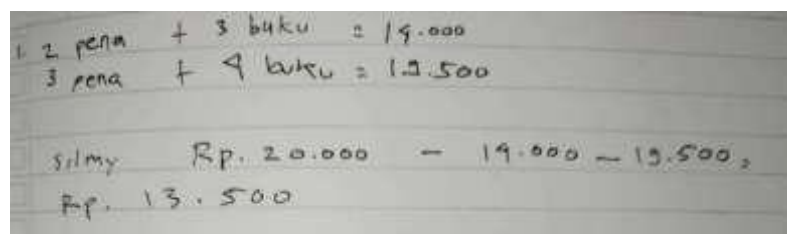 1. 2 pena + 3 buku = 14.000
3 pena + 4 buku = 19.500
silmy Rp. 20.000 - 14.000 - 19.500 =
Rp. 13.500